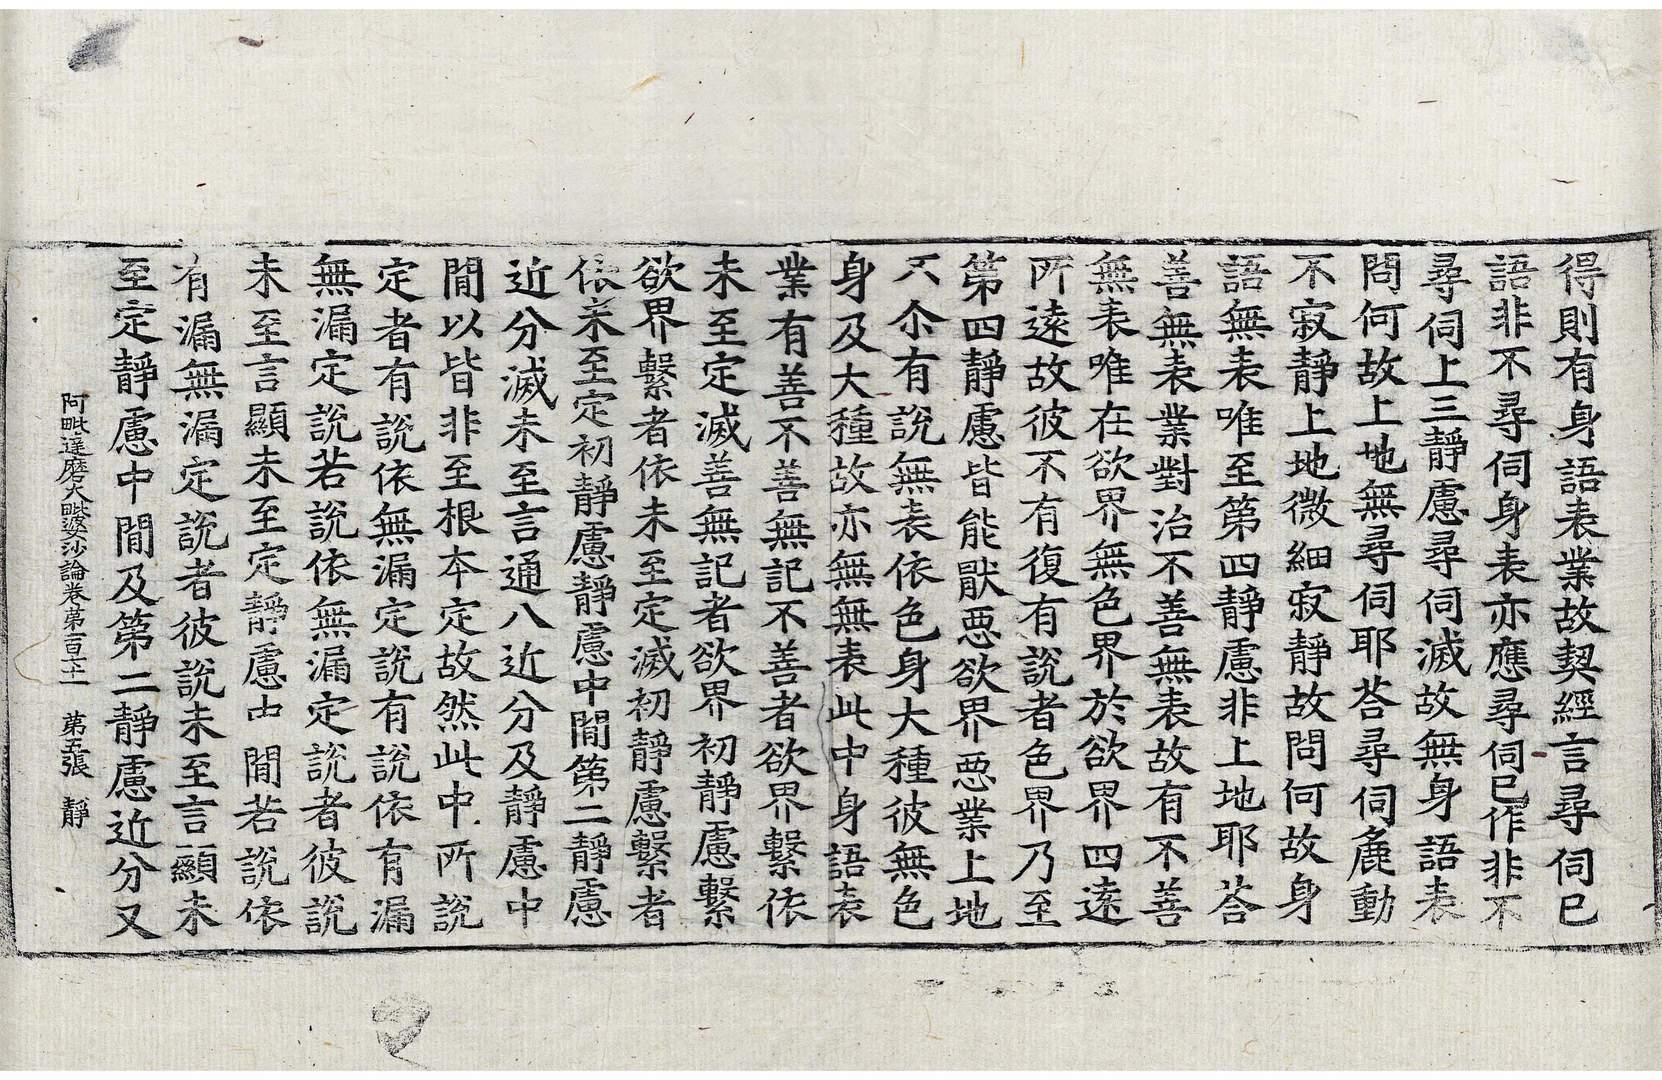 得則有身語表業故契經言尋伺已
語非不尋伺身表亦應尋伺已作非不
尋伺上三靜慮尋伺滅故無身語表
問何故上地無尋伺耶荅尋伺麁動
不寂靜上地微細寂靜故問何故身
語無表唯至第四靜慮非上地耶荅
善無表業對治不善無表故有不善
無表唯在欲界無色界於欲界四遠
所遠故彼不有復有說者色界乃至
第四靜慮皆能厭惡欲界惡業上地
不尒有說無表依色身大種彼無色
身及大種故亦無無表此中身語表
業有善不善無記不善者欲界繫依
未至定滅善無記者欲界初靜慮繫
欲界繫者依未至定滅初靜慮繫者
依未至定初靜慮靜慮中閒第二靜慮
近分滅未至言通八近分及靜慮中
閒以皆非至根本定故然此中所說
定者有說依無漏定說有說依有漏
無漏定說若說依無漏定說者彼說
未至言顯未至定靜慮中閒若說依
有漏無漏定說者彼說未至言顯未
至定靜慮中閒及第二靜慮近分又
阿毗達磨大毗婆沙論卷第百六十一　第五張　靜